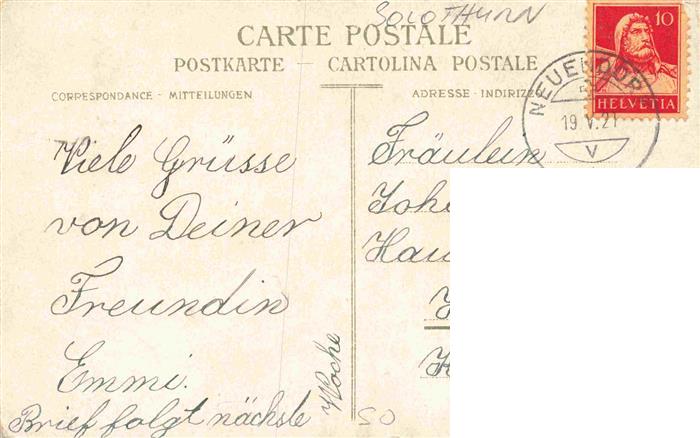 SOLOTHURN
CARTE POSTALE
POSTKARTE – CARTOLINA POSTALE
CORRESPONDANCE - MITTEILUNGEN
ADRESSE - INDIRIZZO
10
HELVETIA
NEUENDOR
19.V.21
V
Viele Grüsse
von Deiner
Freundin
Emmi.
Brief folgt nächste
Woche
Fräulein
SO